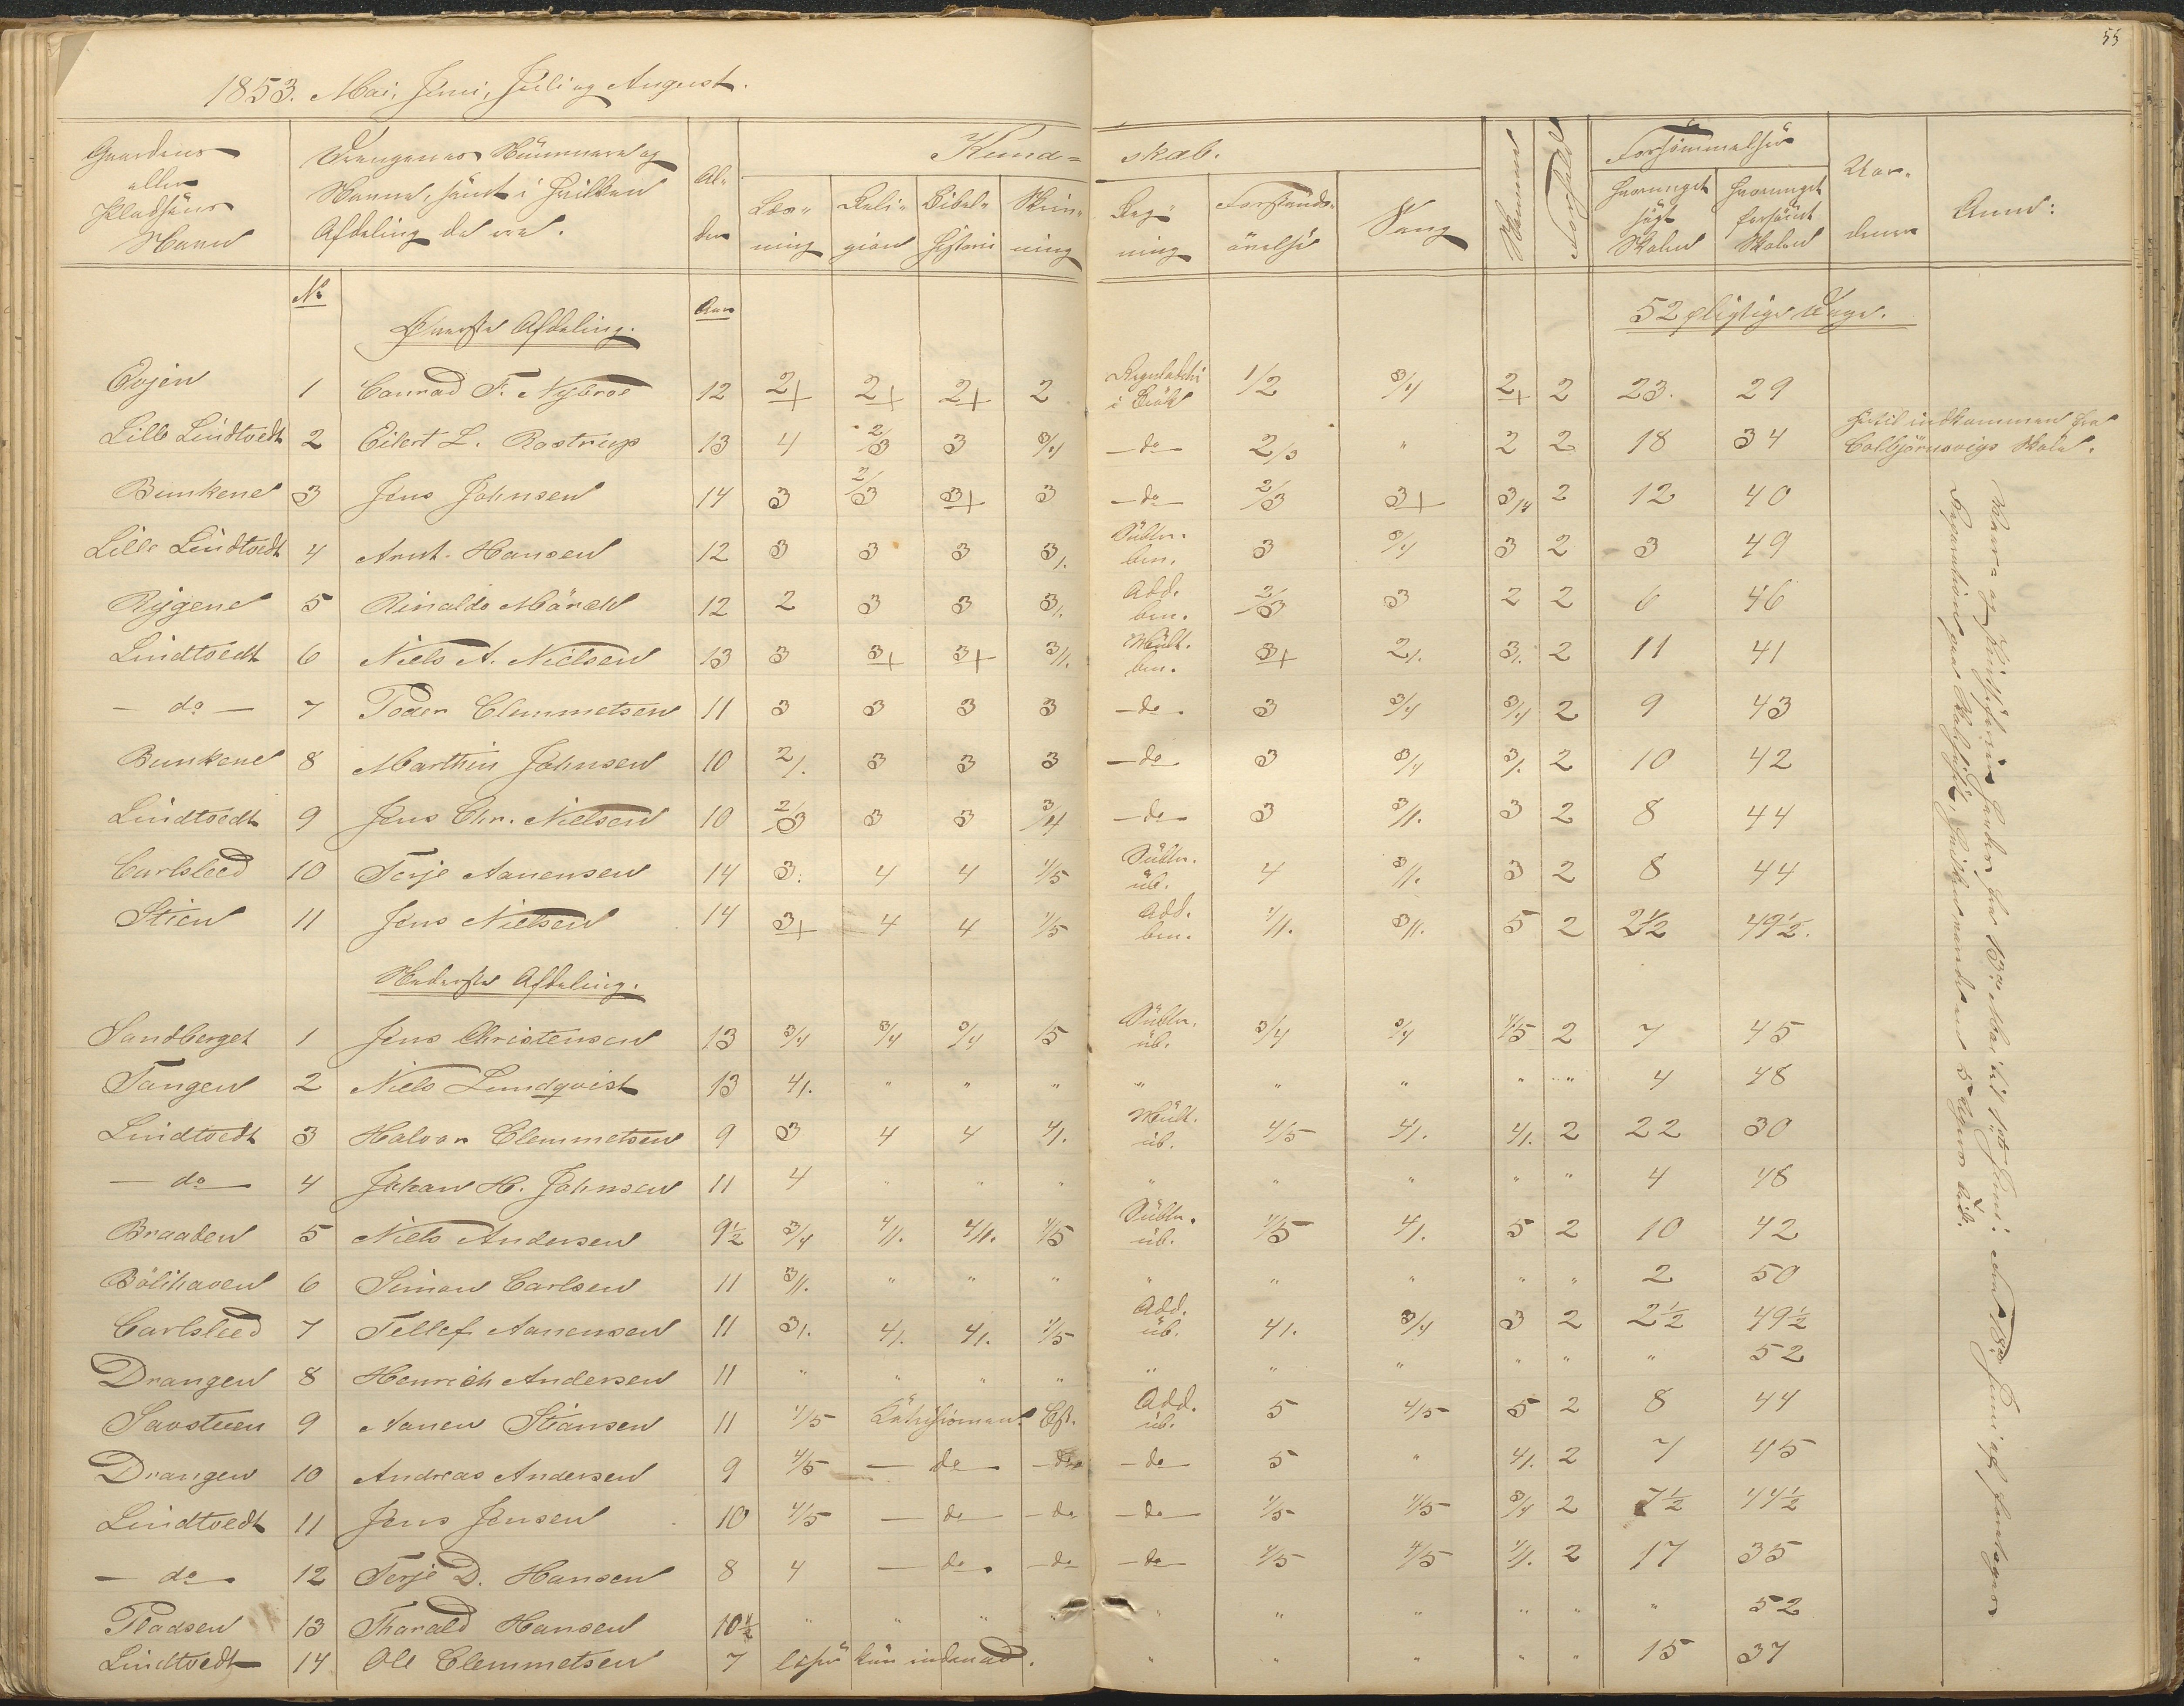 55
1853. Mai, Juni, Juli og August.
Gaardens eller Pladsens Navn | Drengenes Nummere og Navne, samt i hvilken Afdeling de ere. | Alder | Kundskab. | Nemme | Forhold | Forsømmelser | Aarsagen | Anm:
Læsning | Religion | Bibelhistorie | Skrivning | Regning | Forstandsøvelse | Sang | Hvormeget søgt Skolen | Hvormeget forsømt Skolen
No | Øverste Afdeling. | Aar | 52 pligtige Dage.
Evjen 1 Conrad F. Nybroe 12 2+ 2+ 2+ 2 Reguladetri i Brøk 1/2 3/4 2+ 2 23. 29
Lille Lindtvedt 2 Eilert L. Rostrup 13 4 2/3 3 3/4 - do - 2/3 " 2 2 18 34 hertil indkommen fra Colbjörnsvigs Skole.
Bunkene 3 Jens Johnsen 14 3 2/3 3+ 3 - do - 2/3 3+ 3/4 2 12 40
Lille Lindtvedt 4 Arnt. Hansen 12 3 3 3 3/. Subtr. ben. 3 3/4 3 2 3 49
Rygene 5 Rinaldo Mörch 12 2 3 3 3/. Add. ben. 2/3 3 2 2 6 46
Lindtvedt 6 Niels A. Nielsen 13 3 3+ 3+ 3/. Mult. ben. 3+ 2/. 3/. 2 11 41
- do - 7 Peder Clemmetsen 11 3 3 3 3 - do - 3 3/4 3/4 2 9 43
Bunkene 8 Marthin Johnsen 10 2/. 3 3 3 - do - 3 3/4 3/. 2 10 42
Lindtvedt 9 Jens Chr. Nielsen 10 2/3 3 3 3/4 - do - 3 3/. 3 2 8 44
Carlsleed 10 Terje Aanensen 14 3. 4 4 4/5 Subtr. üb. 4 3/. 3 2 8 44
Stien 11 Jens Nielsen 14 3+ 4 4 4/5 Add. ben. 4/. 3/. 5 2 2½ 49½.
Nederste Afdeling.
Sandberget 1 Jens Christensen 13 3/4 3/4 3/4 5 Subtr. üb. 3/4 3/4 4/5 2 7 45
Tangen 2 Niels Lundqvist 13 4/. " " " " " " " " 4 48
Lindtvedt 3 Halvor Clemmetsen 9 3 4 4 4/. Mult. üb. 4/5 4/. 4/. 2 22 30
- do - 4 Johan H. Johnsen 11 4 " " " " " " " " 4 48
Braaten 5 Niels Andersen 9½ 3/4 4/. 4/. 4/5 Subtr. üb. 4/5 4/. 5 2 10 42
Bölihaven 6 Simon Carlsen 11 3/. " " " " " " " " 2 50
Carlsleed 7 Tellef Aanensen 11 3/. 4/. 4/. 4/5 Add. üb. 4/. 3/4 3 2 2½ 49½
Drangen 8 Henrich Andersen 11 " " " " " " " " " " 52
Savstuen 9 Aanen Stiansen 11 4/5 Add. üb. 5 4/5 5 2 8 44
Drangen 10 Andreas Andersen 9 4/5 - do - - do - - do - 5 " 4/. 2 7 45
Lindtvedt 11 Jens Jensen 10 4/5 - do - - do - - do - 4/5 4/5 3/4 2 7½ 44½
- do - 12 Terje D. Hansen 8 4 - do - - do - - do - 4/5 4/5 4/. 2 17 35
Pladsen 13 Tharald Hansen 10½ " " " " " " " " " " 52
Lindtvedt 14 Ole Clemmetsen 7 læser kun indenad. " " " " " 15 37